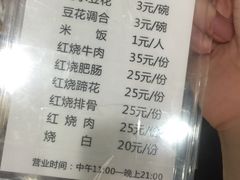 豆花 3元/碗
豆花调合 3元/碗
米饭 1元/人
红烧牛肉 35元/份
红烧肥肠 25元/份
红烧蹄花 25元/份
红烧排骨 25元/份
红烧肉 25元/份
烧白 20元/份
营业时间：中午11:00—晚上21:00